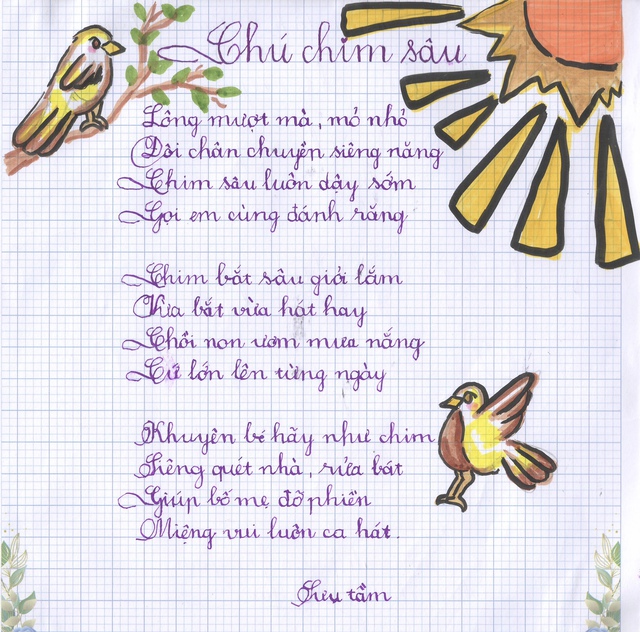 Chú chim sâu
Lông mượt mà, mỏ nhỏ
Đôi chân chuyền siêng năng
Chim sâu luôn dậy sớm
Gọi em cùng đánh răng
Chim bắt sâu giỏi lắm
Vừa bắt vừa hát hay
Chồi non ươm mưa nắng
Cứ lớn lên từng ngày
Khuyên bé hãy như chim
Siêng quét nhà, rửa bát
Giúp bố mẹ đỡ phiền
Miệng vui luôn ca hát.
Sưu tầm